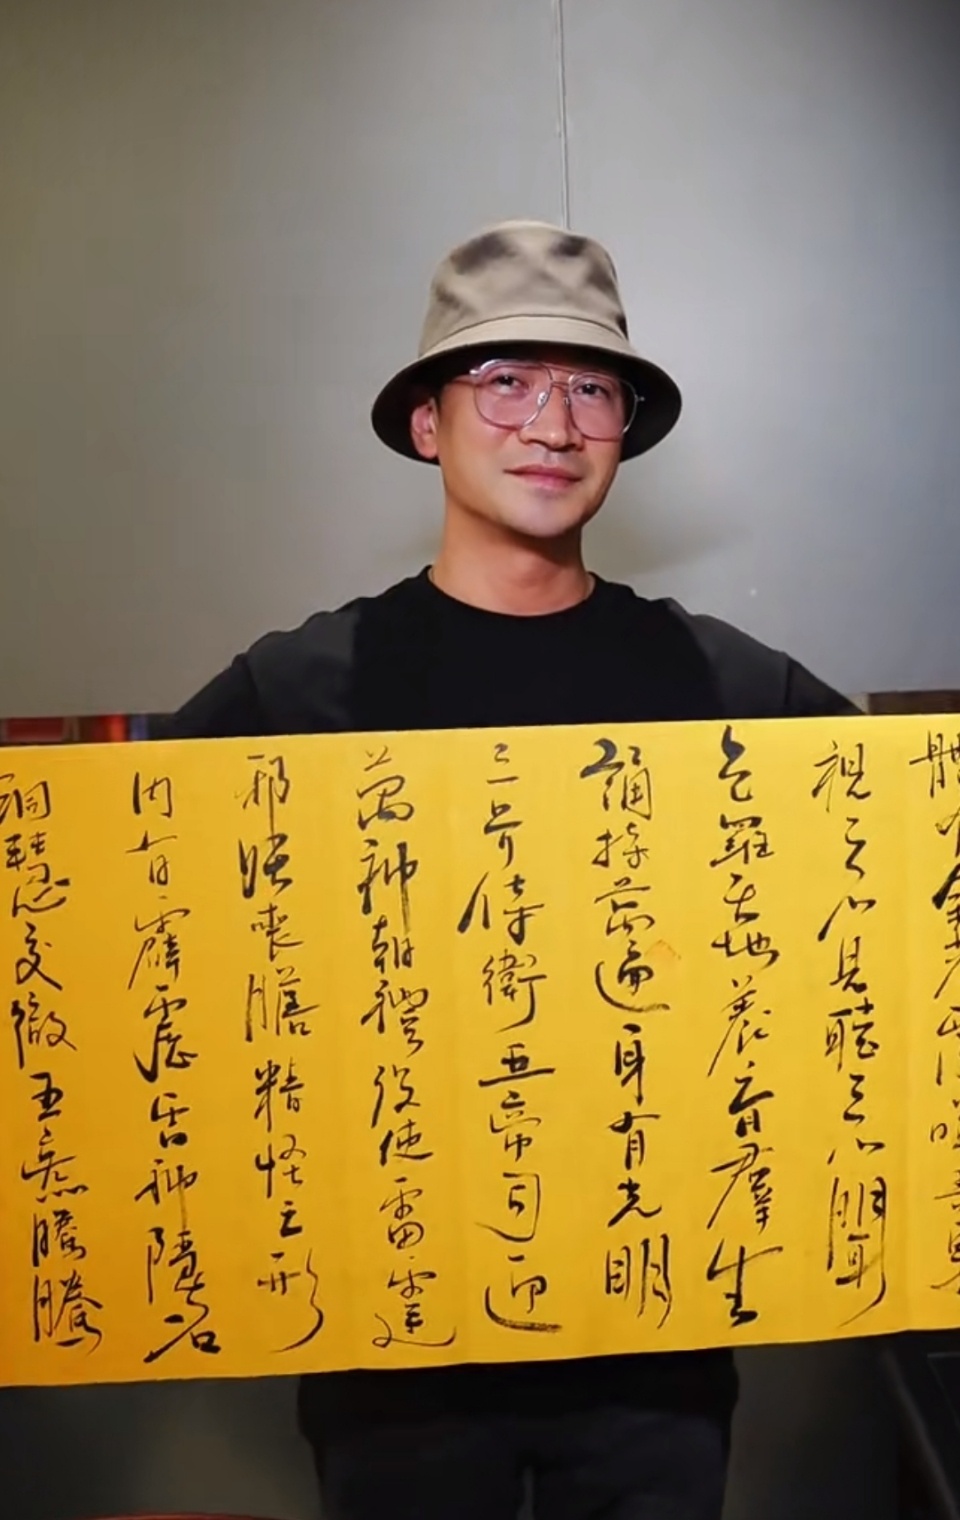 體有金光
視之不見聽之不聞
包羅天地養育羣生
誦持萬遍身有光明
三界侍衛五帝司迎
萬神朝禮役使雷霆
邪妖喪膽精怪亡形
內有霹靂神隱名
洞慧交徹五炁騰騰